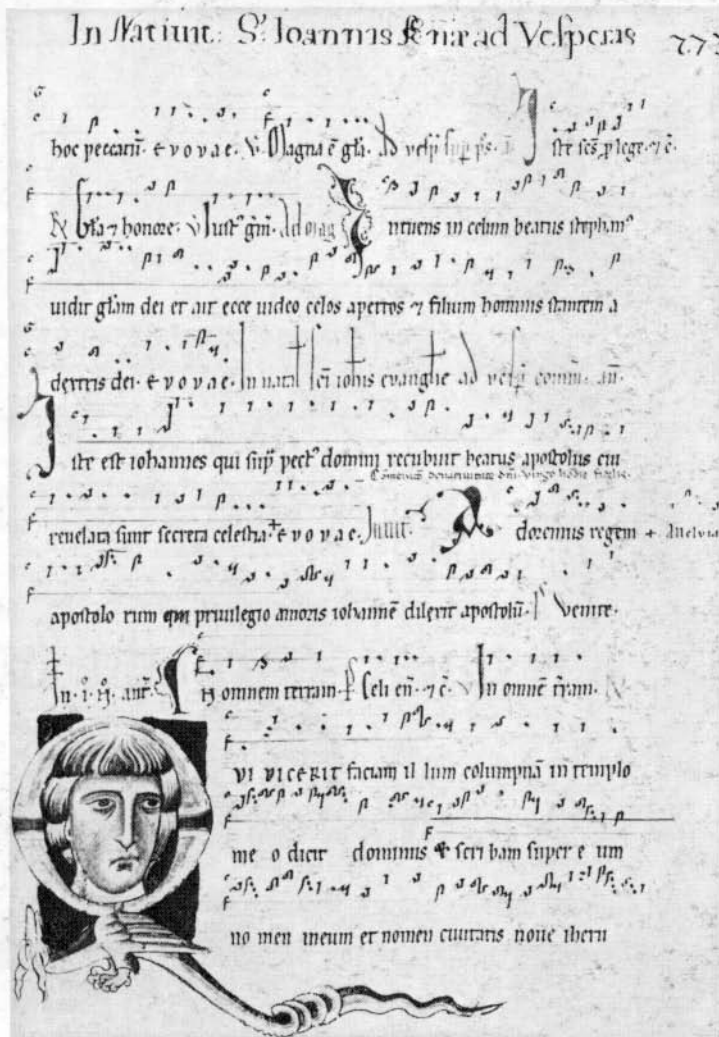 In Natiuit: S. Ioannis ad Vesperas 77
hoc peccatū. e v o v a e. V. Magna ē glā. Ad vesp̄ sup̄ p̄s. Iste scs̄ p lege. ⁊ c̄.
R Glā ⁊ honore. V Iust⁹ ntuens in celum beatus steph
uidit glām dei et ait ecce uideo celos apertos ⁊ filium hominis stantem a
dextris dei. e v o v a e. In natal sc̄i iohis evangłie ad vesp̄ an̄.
Iste est iohannes qui sup̄ pect⁹ domini recubuit beatus apostolus cui
reuelata sunt secreta celestia. + e v o v a e. Inuit. Adoremus regem +
apostolo rum qui priuilegio amoris iohannē dilexit apostolū. Venite.
In . i . N̊. ant̄. In omnem terram. Celi en̄. ⁊ c̄. V In omnē tr̄am.
QVI VICERIT faciam il lum columpnā in templo
me o dicit dominus et scri bam super e um
no men meum et nomen ciuitatis noue iheru